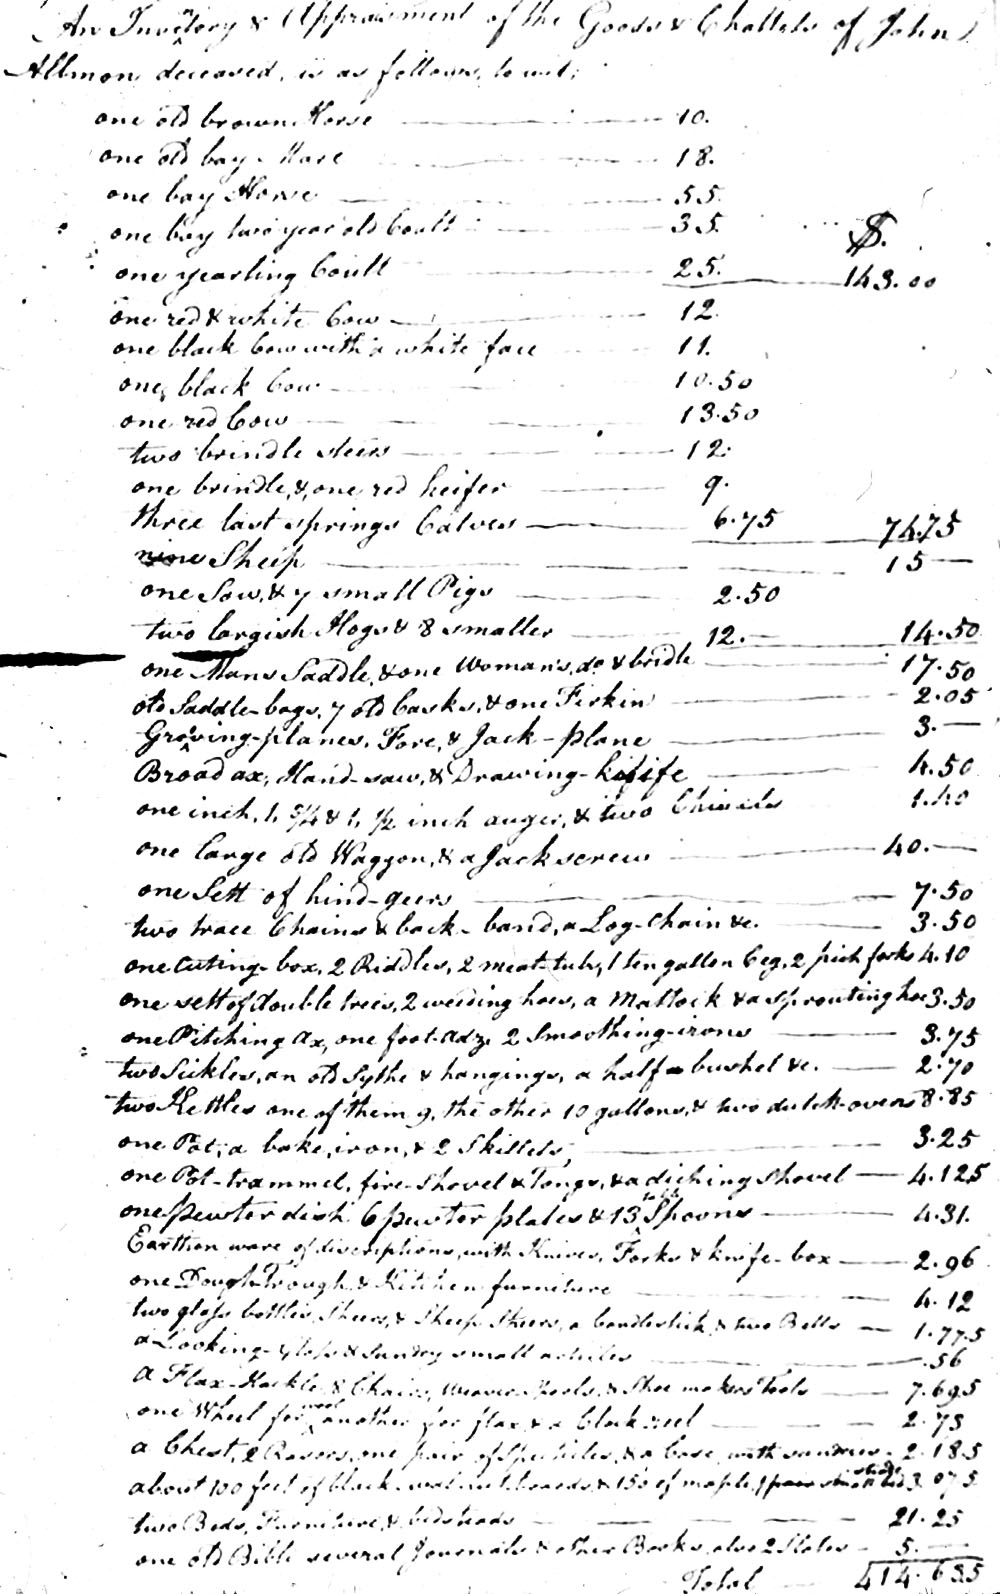 An Inventory & Appraisment of the Goods & Chattels of John
Allmon deceased, is as follows, to wit;
one old brown Horse 10.
one old bay Mare 18.
one bay Horse 55.
one bay two year old Coult 35. $.
one yearling Coult 25. 143.00
one red & white Cow 12.
one black Cow with a white face 11.
one black Cow 10.50
one red Cow 13.50
two brindle steers 12.
one brindle, & one red heifer 9.
three last springs Calves 6.75 74.75
nine Sheep 15
one Sow, & 7 small Pigs 2.50
two largish Hogs & 8 smaller 12. 14.50
one Mans Saddle, & one Woman's, do & bridle 17.50
old Saddle-bags, 7 old Casks, & one Firkin 2.05
Groving-planes, Fore, & Jack-plane 3.
Broad ax, Hand-saw, & Drawing-knife 4.50
one inch, 1, 5/4 & 1, 1/2 inch auger, & two Chissels 1.40
one large old Waggon, & a Jack screw 40.
one Sett of hind-geers 7.50
two trace Chains & back-band, a Log-Chain &c. 3.50
one Cuting-box, 2 Riddles, 2 meat-tubs, 1 ten gallon Ceg, 2 pich forks 4.10
one sett of double trees, 2 weeding hoes, a Mattock & a sprouting hoe 3.50
one Pitching Ax, one foot-adz, 2 Smoothing-irons 3.75
two Sickles, an old Sythe & hangings, a half-bushel &c. 2.70
two Kettles one of them 9, the other 10 gallons, & two dutch-ovens 8.85
one Pot, a bake, iron, & 2 Skillets, 3.25
one Pot-trammel, fire-Shovel & Tongs, & a diching Shovel 4.125
one pewter dish 6 pewter plates & 13 Spoons 4.31.
Earthen ware of discriptions, with Knives, Forks & knife-box 2.96
one Dough-Trough & Kitchen furniture 4.12
two glass bottles, Sheers, & Sheep Sheers, a Candlestick, & two Bells 1.775
a Looking-Glass & sundry small articles .56
a Flax-Hackle, & Chairs, Weavers Spools, & Shoe makers Tools 7.695
one Wheel for wool another for flax & a Clock reel 2.75
a Chest, 2 Rasors, one pair of Specticles, & a base with sundries 2.185
about 100 feet of black-walnut boards, & 150 of maple, 1 pair 3.075
two Beds, Furniture, & bedsteads 21.25
one old Bible several Journals & other Books, also 2 Slates 5.
Total 414.635